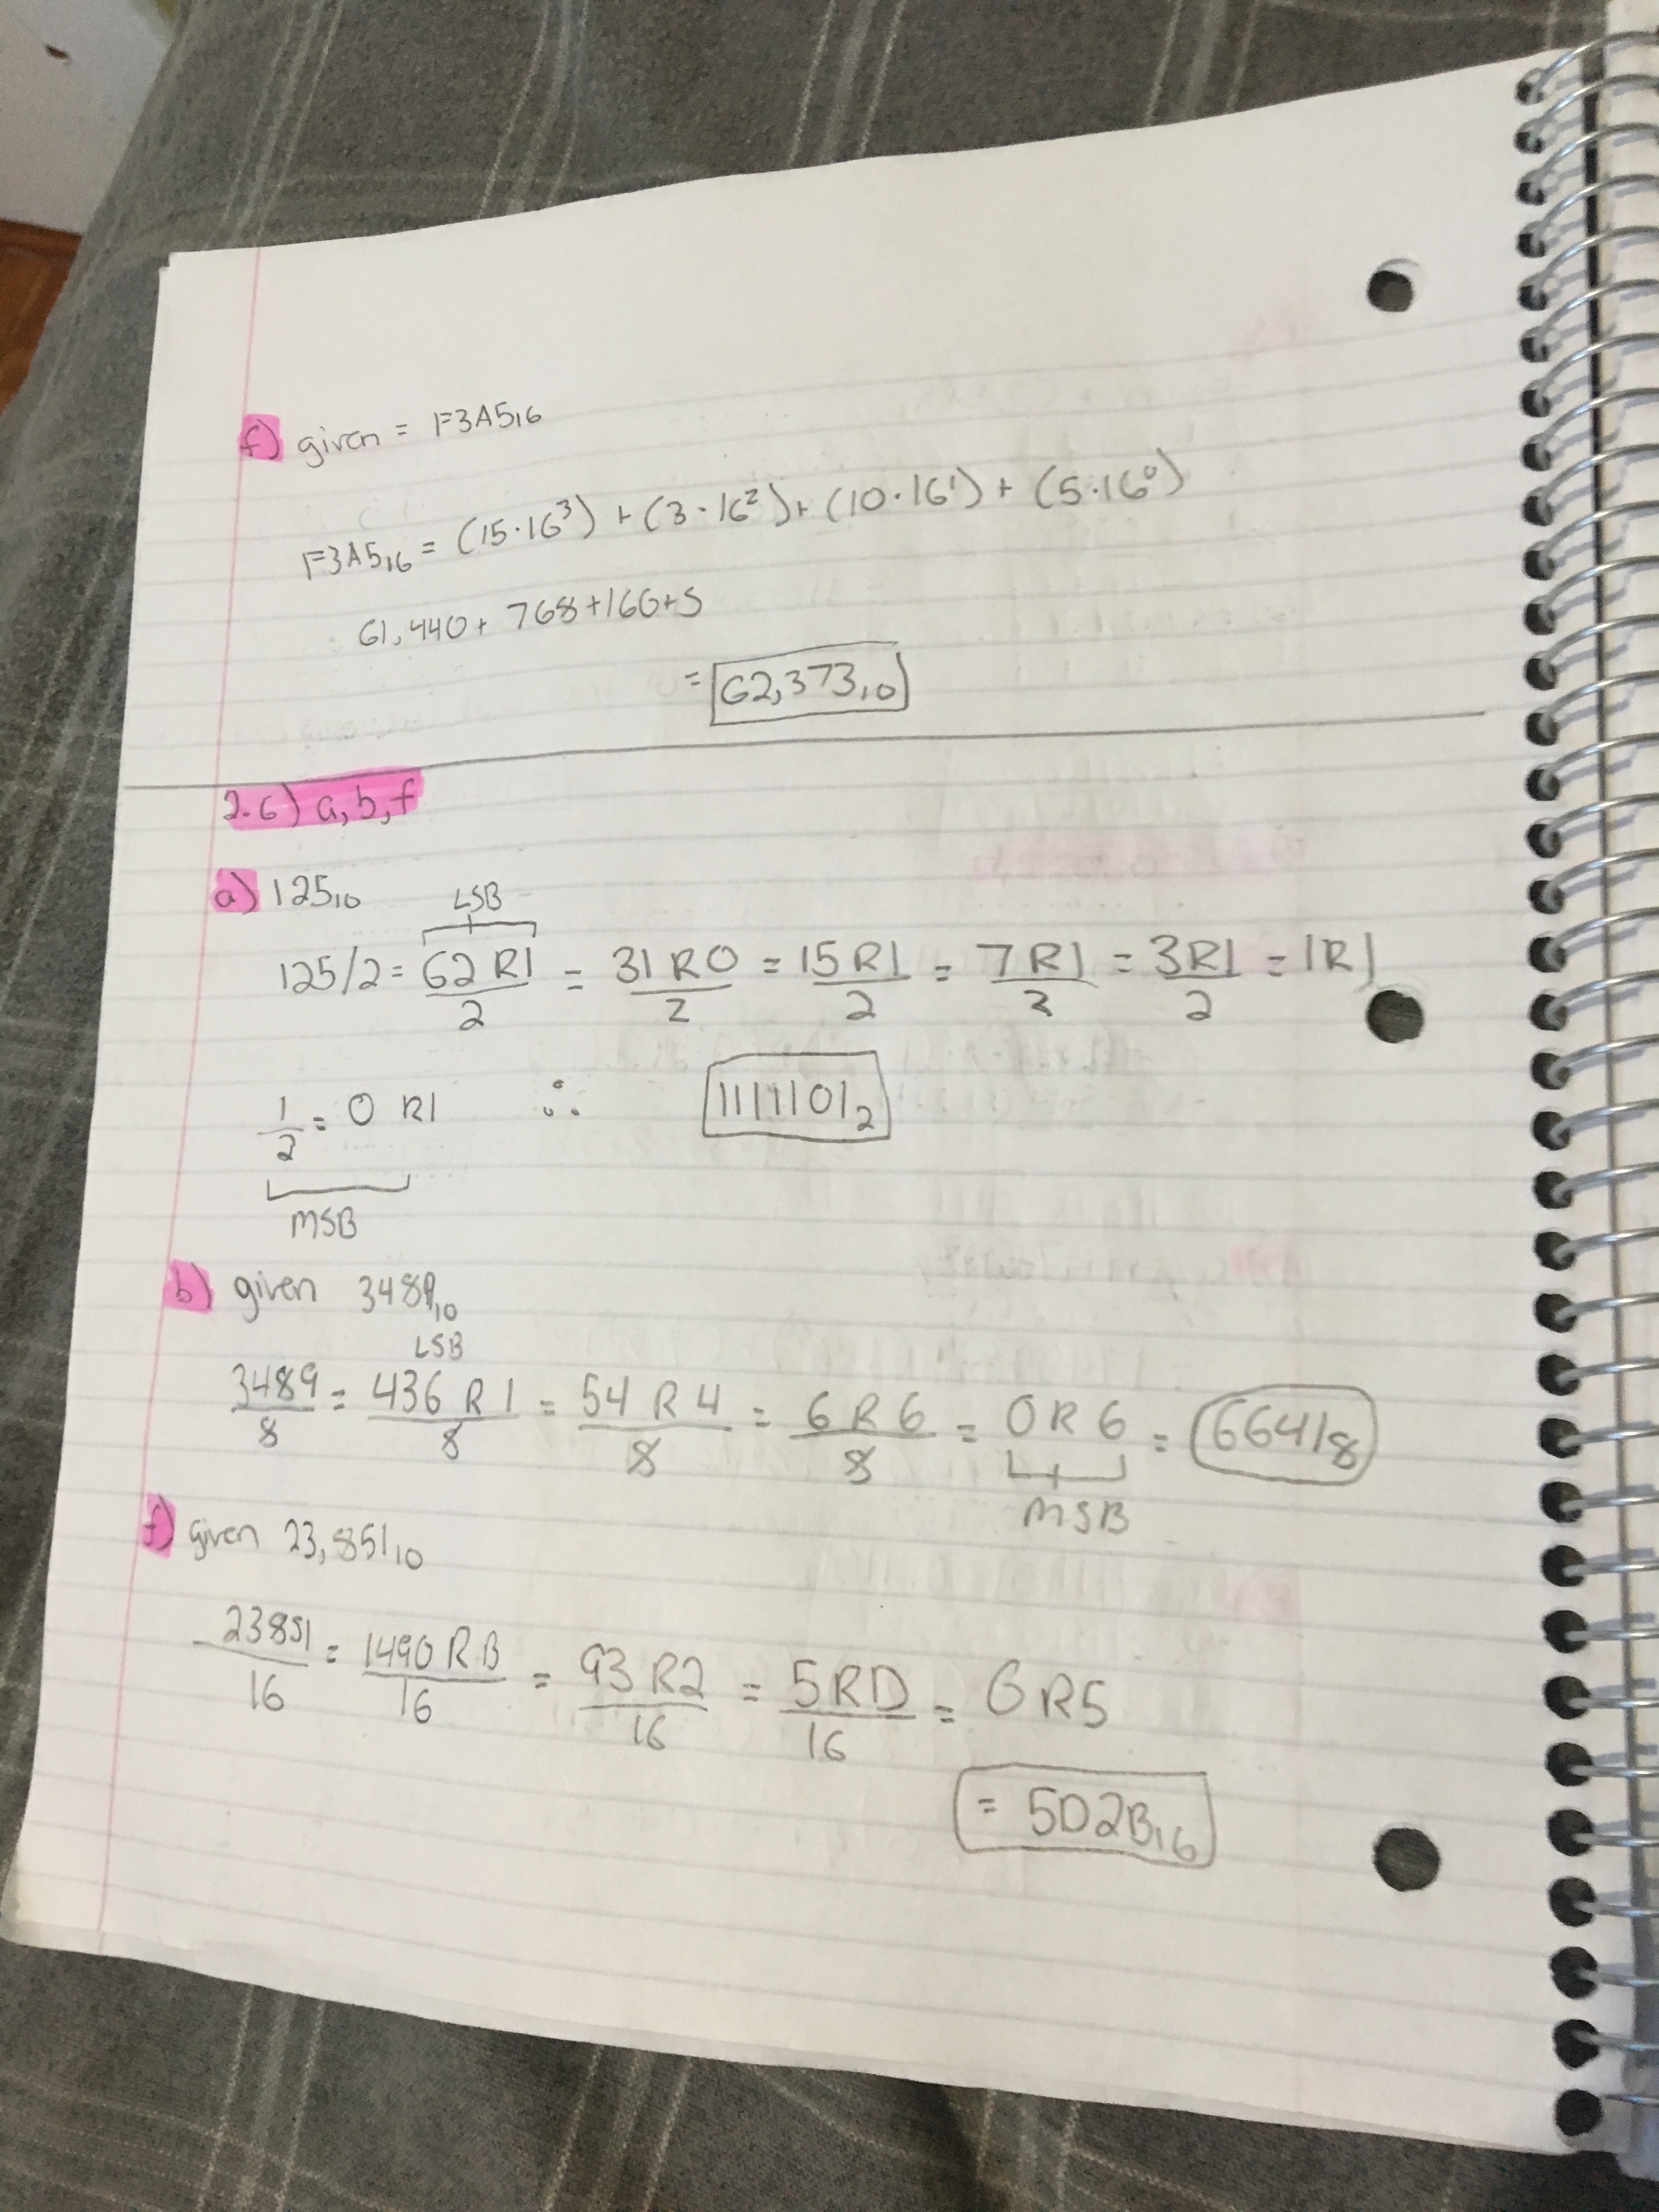 f) given = F3A5₁₆
F3A5₁₆ = (15·16³) + (3·16²) + (10·16¹) + (5·16⁰)
61,440 + 768 + 160 + 5
= 62,373₁₀
2.6) a, b, f
a) 125₁₀
LSB
125/2 = 62 R1/2 = 31 R0/2 = 15 R1/2 = 7 R1/2 = 3 R1/2 = 1 R1
1/2 = 0 R1 ∴ 1111101₂
MSB
b) given 3489₁₀
LSB
3489/8 = 436 R1/8 = 54 R4/8 = 6 R6/8 = 0 R6 = 6641₈
MSB
f) given 23,851₁₀
23851/16 = 1490 RB/16 = 93 R2/16 = 5 RD/16 = 0 R5
= 5D2B₁₆